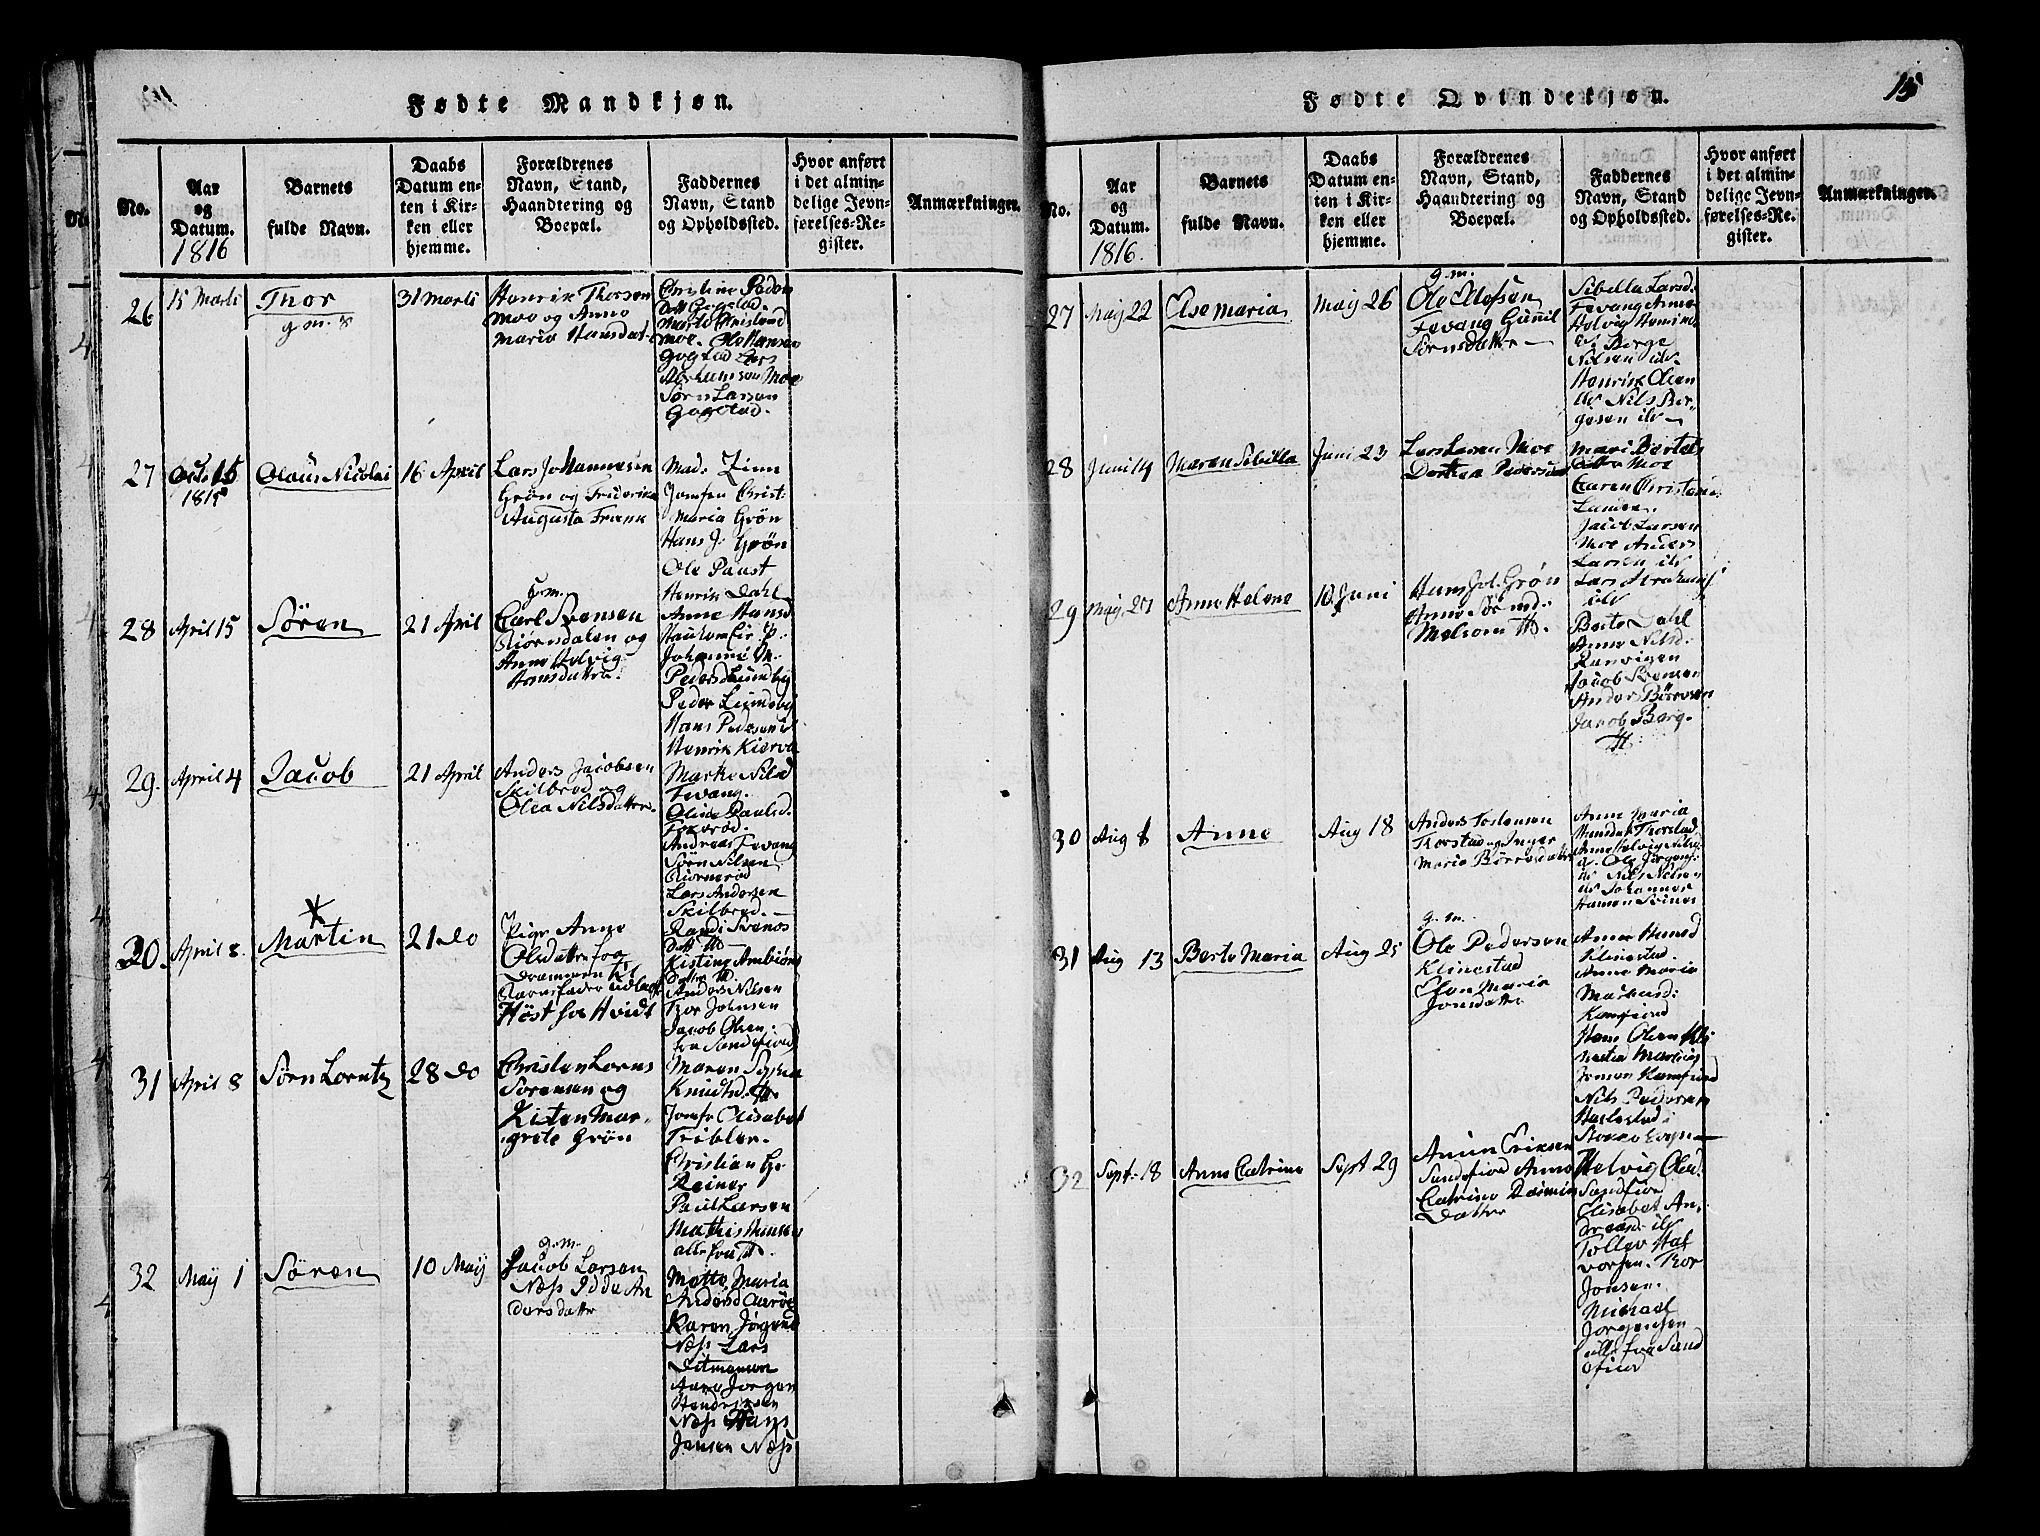 Fødte Mandkjøn.
No.
Aar
og
Datum.
1816
Barnets
fulde Navn.
Daabs
Datum en-
ten i Kir-
ken eller
hjemme.
Forældrenes
Navn, Stand,
Haandtering og
Boepæl.
Faddernes
Navn, Stand
og Opholdssted.
Hvor anført
i det almin-
delige Jevn-
førelses-Re-
gister.
Anmærkninger.
26
15 Marti
Thor
g. m.
31 Marti
Henrik Thorsen
Moe og Anne
Maria Hansdat
Christine Peders
Datt Gogstad.
Moe. Ole Hansen
Gogstad Lars
Abrahamson Moe
Sørn Larsen
Gogstad.
27
Oct. 15
1815
Olaus Nicolai
16 April
Lars Johannesen
Grøn og Friderika
Augusta Frank
Mad. Zinn
Jomfru Christ:
Maria Grøn
Hans J. Grøn
Ole Paust
Henrik Dahl
28
April 15
Søren
21 April
g. m.
Carl Svensen
Biørnsdalen og
Anne Helvig
Arnsdatter.
Anne Hansd
Johanne M.
Pedersd Lundby
Peder Lundby
Hans Pedersen
Henrik Kierva
29.
April 4
Jacob
21 April
Anders Jacobsen
Skilbred og
Olea Nilsdatter.
Marthe Nilsd
Fevang.
Oline Paulsd.
Andreas Fevang
Sørn Nilsen
Lars Andersen
Skilbred.
30.
April 8.
Martin
21 do
Pige Anne
Olsdatter fog
Drammen
Barnefader udlagt
Høst fra Hvidt
Randi Svenos
Dattr
Kisting Ambiørns
Dattr
Anders Nilsen
Thor Johnsen
Jacob Olsen
fra Sandefiord
31
April 8
Sørn Lorntz
28 do
Christen Lorns
Sørensen og
Kisten Mar-
grete Grøn
Maren Sophia
Knudtsd.
Jomfr Elisabet
Tribler.
Christian Gr
Reiner
Paul Larsen
Mathis Hansen
alle fra
32
May 1
Søren
10 May
g. m.
Jacob Larsen
Næss Idde An
dersdatter
Mette Maria
Andersd Aarøe
Karen Jørgensd
Næss Lars
Ditmansen
Aarø Jørgen
Hendriksen
Næss Hans
Jensen Næss
Fødte Qvindekjøn.
15
No.
Aar
og
Datum.
1816.
Barnets
fulde Navn.
Daabs
Datum en-
ten i Kir-
ken eller
hjemme.
Forældrenes
Navn, Stand,
Haandtering og
Boepæl.
Faddernes
Navn, Stand
og Opholdssted.
Hvor anført
i det almin-
delige Jevn-
førelses-Re-
gister.
Anmærkninger.
27
May 22
Else Maria
May 26
g. m.
Ole Olofsen
Fevang Gunnil
Sørnsdatter
Sibella Larsd.
Fevang Anne
Helvig
Børge
Nilsen ib.
Henrik Olsen
ib Nils Bør-
gesen ib
28
Juni 14
Maren Sibilla
Juni 23
Lars Larsen Moe
Dorthea Pedersdat
Mari Bertels
datter Moe
Karen Christens
Jacob Larsen
Moe Anders
Larsen ib
Lars Abrahams
ib
29
May 27
Anne Helene
10 Juni
Hans Joh. Grøn
Anne Sørnd.
Melsom
Berte Dahl
Anne Nilsd.
Ranvigen
Jacob Svensen
Anders Børresen
Jacob Berg.
30
Aug 8
Anne
Aug 18
Anders Tostensen
Thorstad og Inger
Maria Børresdatter
Anne Maria
Thorstad
Anne Helvig Nilsd
Ole Jørgens
ib Nils Nilsen
ib Johannes
31
Aug 13
Berte Maria
Aug 25
g. m.
Ole Pedersen
Klinestad
Elen Maria
Jonsdatter
Anne Hansd
Klinestad.
Anne Maria
Markusd:
Kamfiord
Hans Olsen Kli
nestad Markus
Jensen Kamfiord
Nils Pedersen
Haslestad
32
Sept. 18
Anne Catrine
Sept 29
Amun Eriksen
Sandefiord Anne
Catrine
Datter
Helvig Olsd.
Sandefiord
Elisabet An-
dreasd. ib
Tollev Hal
vorsen. Thor
Jonsen.
Michael
Jørgensen
alle fra Sand
efiord